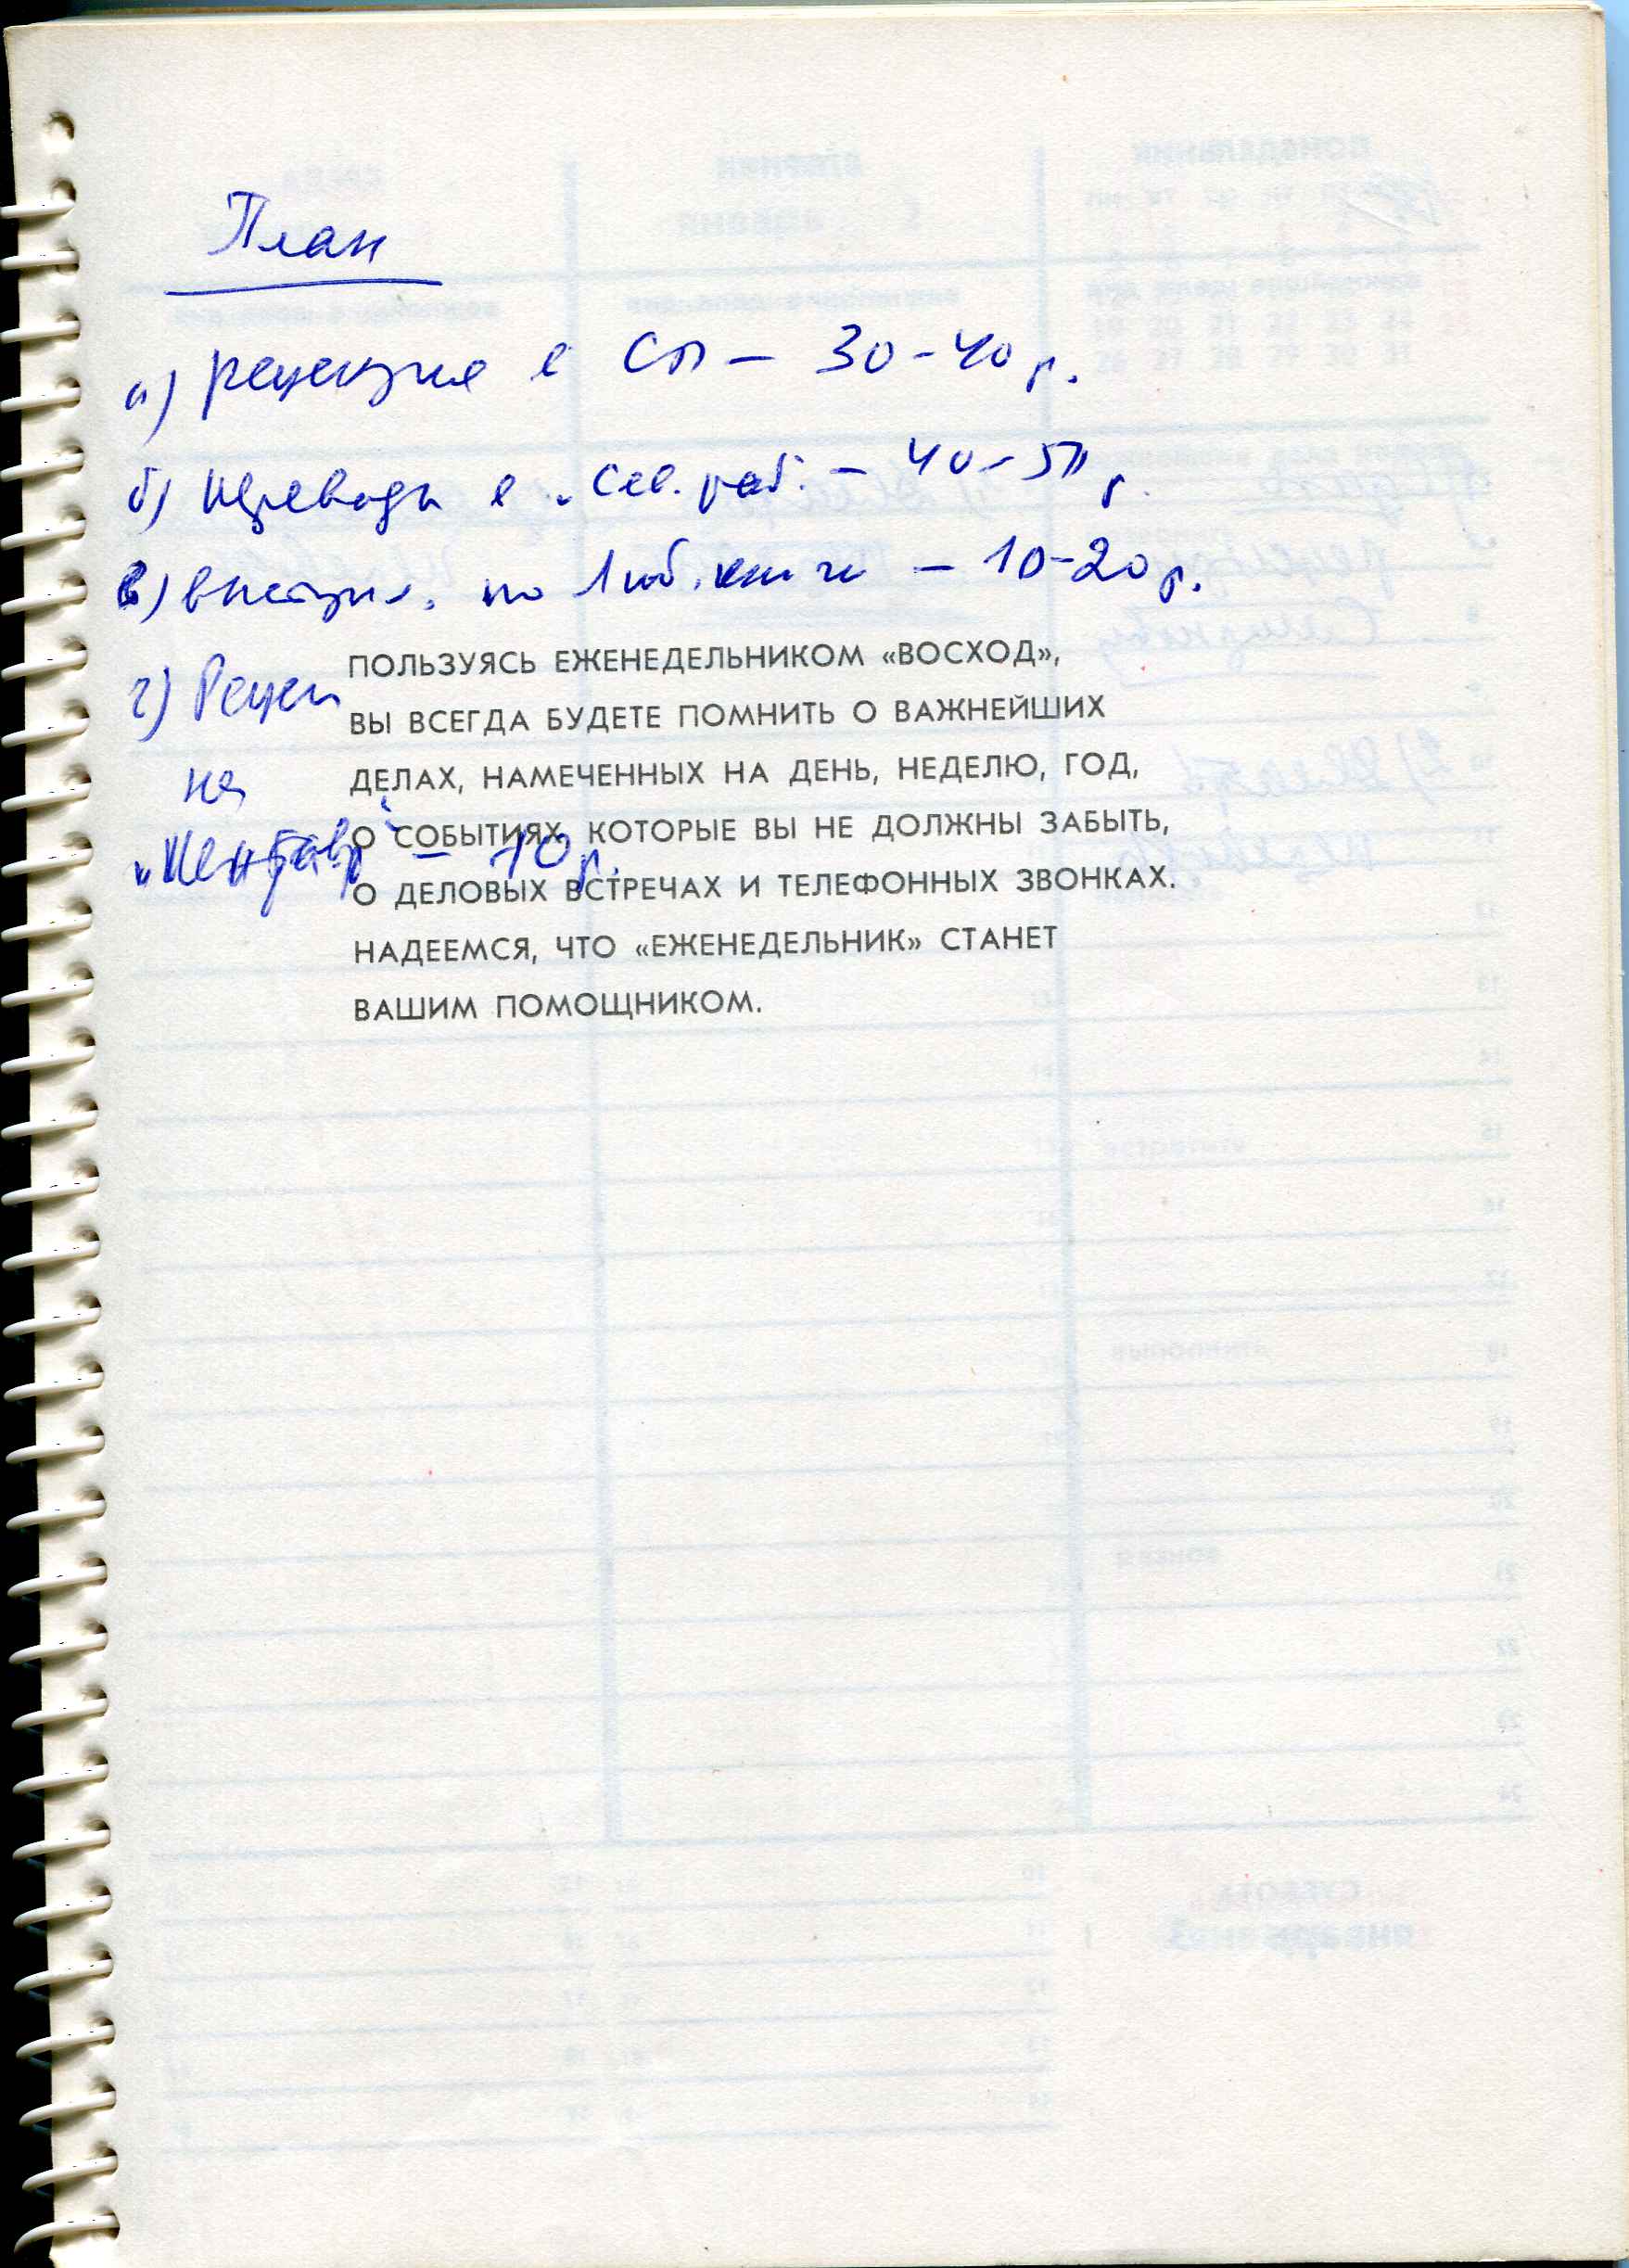 План
а) рецензия в СП – 30-40 р.
б) Переводы в „Сев. раб." – 40-50 р.
в) выступл. по Люб. книги – 10-20 р.
г) Рецен
на
„Кентавр" – 10 р.
ПОЛЬЗУЯСЬ ЕЖЕНЕДЕЛЬНИКОМ «ВОСХОД»,
ВЫ ВСЕГДА БУДЕТЕ ПОМНИТЬ О ВАЖНЕЙШИХ
ДЕЛАХ, НАМЕЧЕННЫХ НА ДЕНЬ, НЕДЕЛЮ, ГОД,
О СОБЫТИЯХ, КОТОРЫЕ ВЫ НЕ ДОЛЖНЫ ЗАБЫТЬ,
О ДЕЛОВЫХ ВСТРЕЧАХ И ТЕЛЕФОННЫХ ЗВОНКАХ.
НАДЕЕМСЯ, ЧТО «ЕЖЕНЕДЕЛЬНИК» СТАНЕТ
ВАШИМ ПОМОЩНИКОМ.